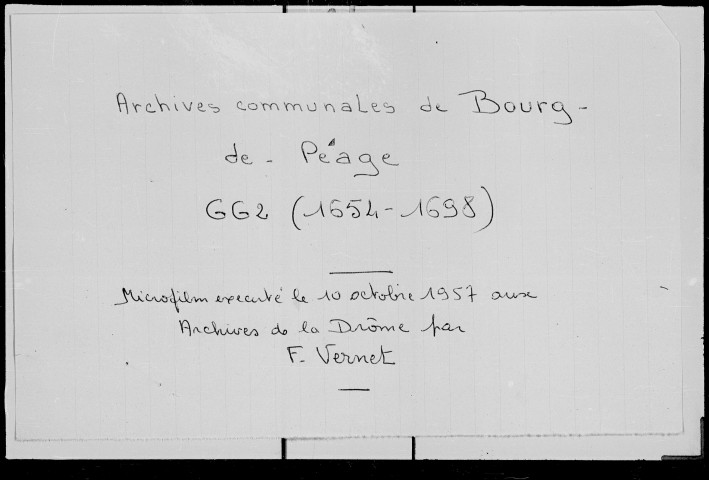 Archives communales de Bourg-
de-Péage
GG2 (1654-1698)
Microfilm executé le 10 octobre 1957 aux
Archives de la Drôme par
F. Vernet